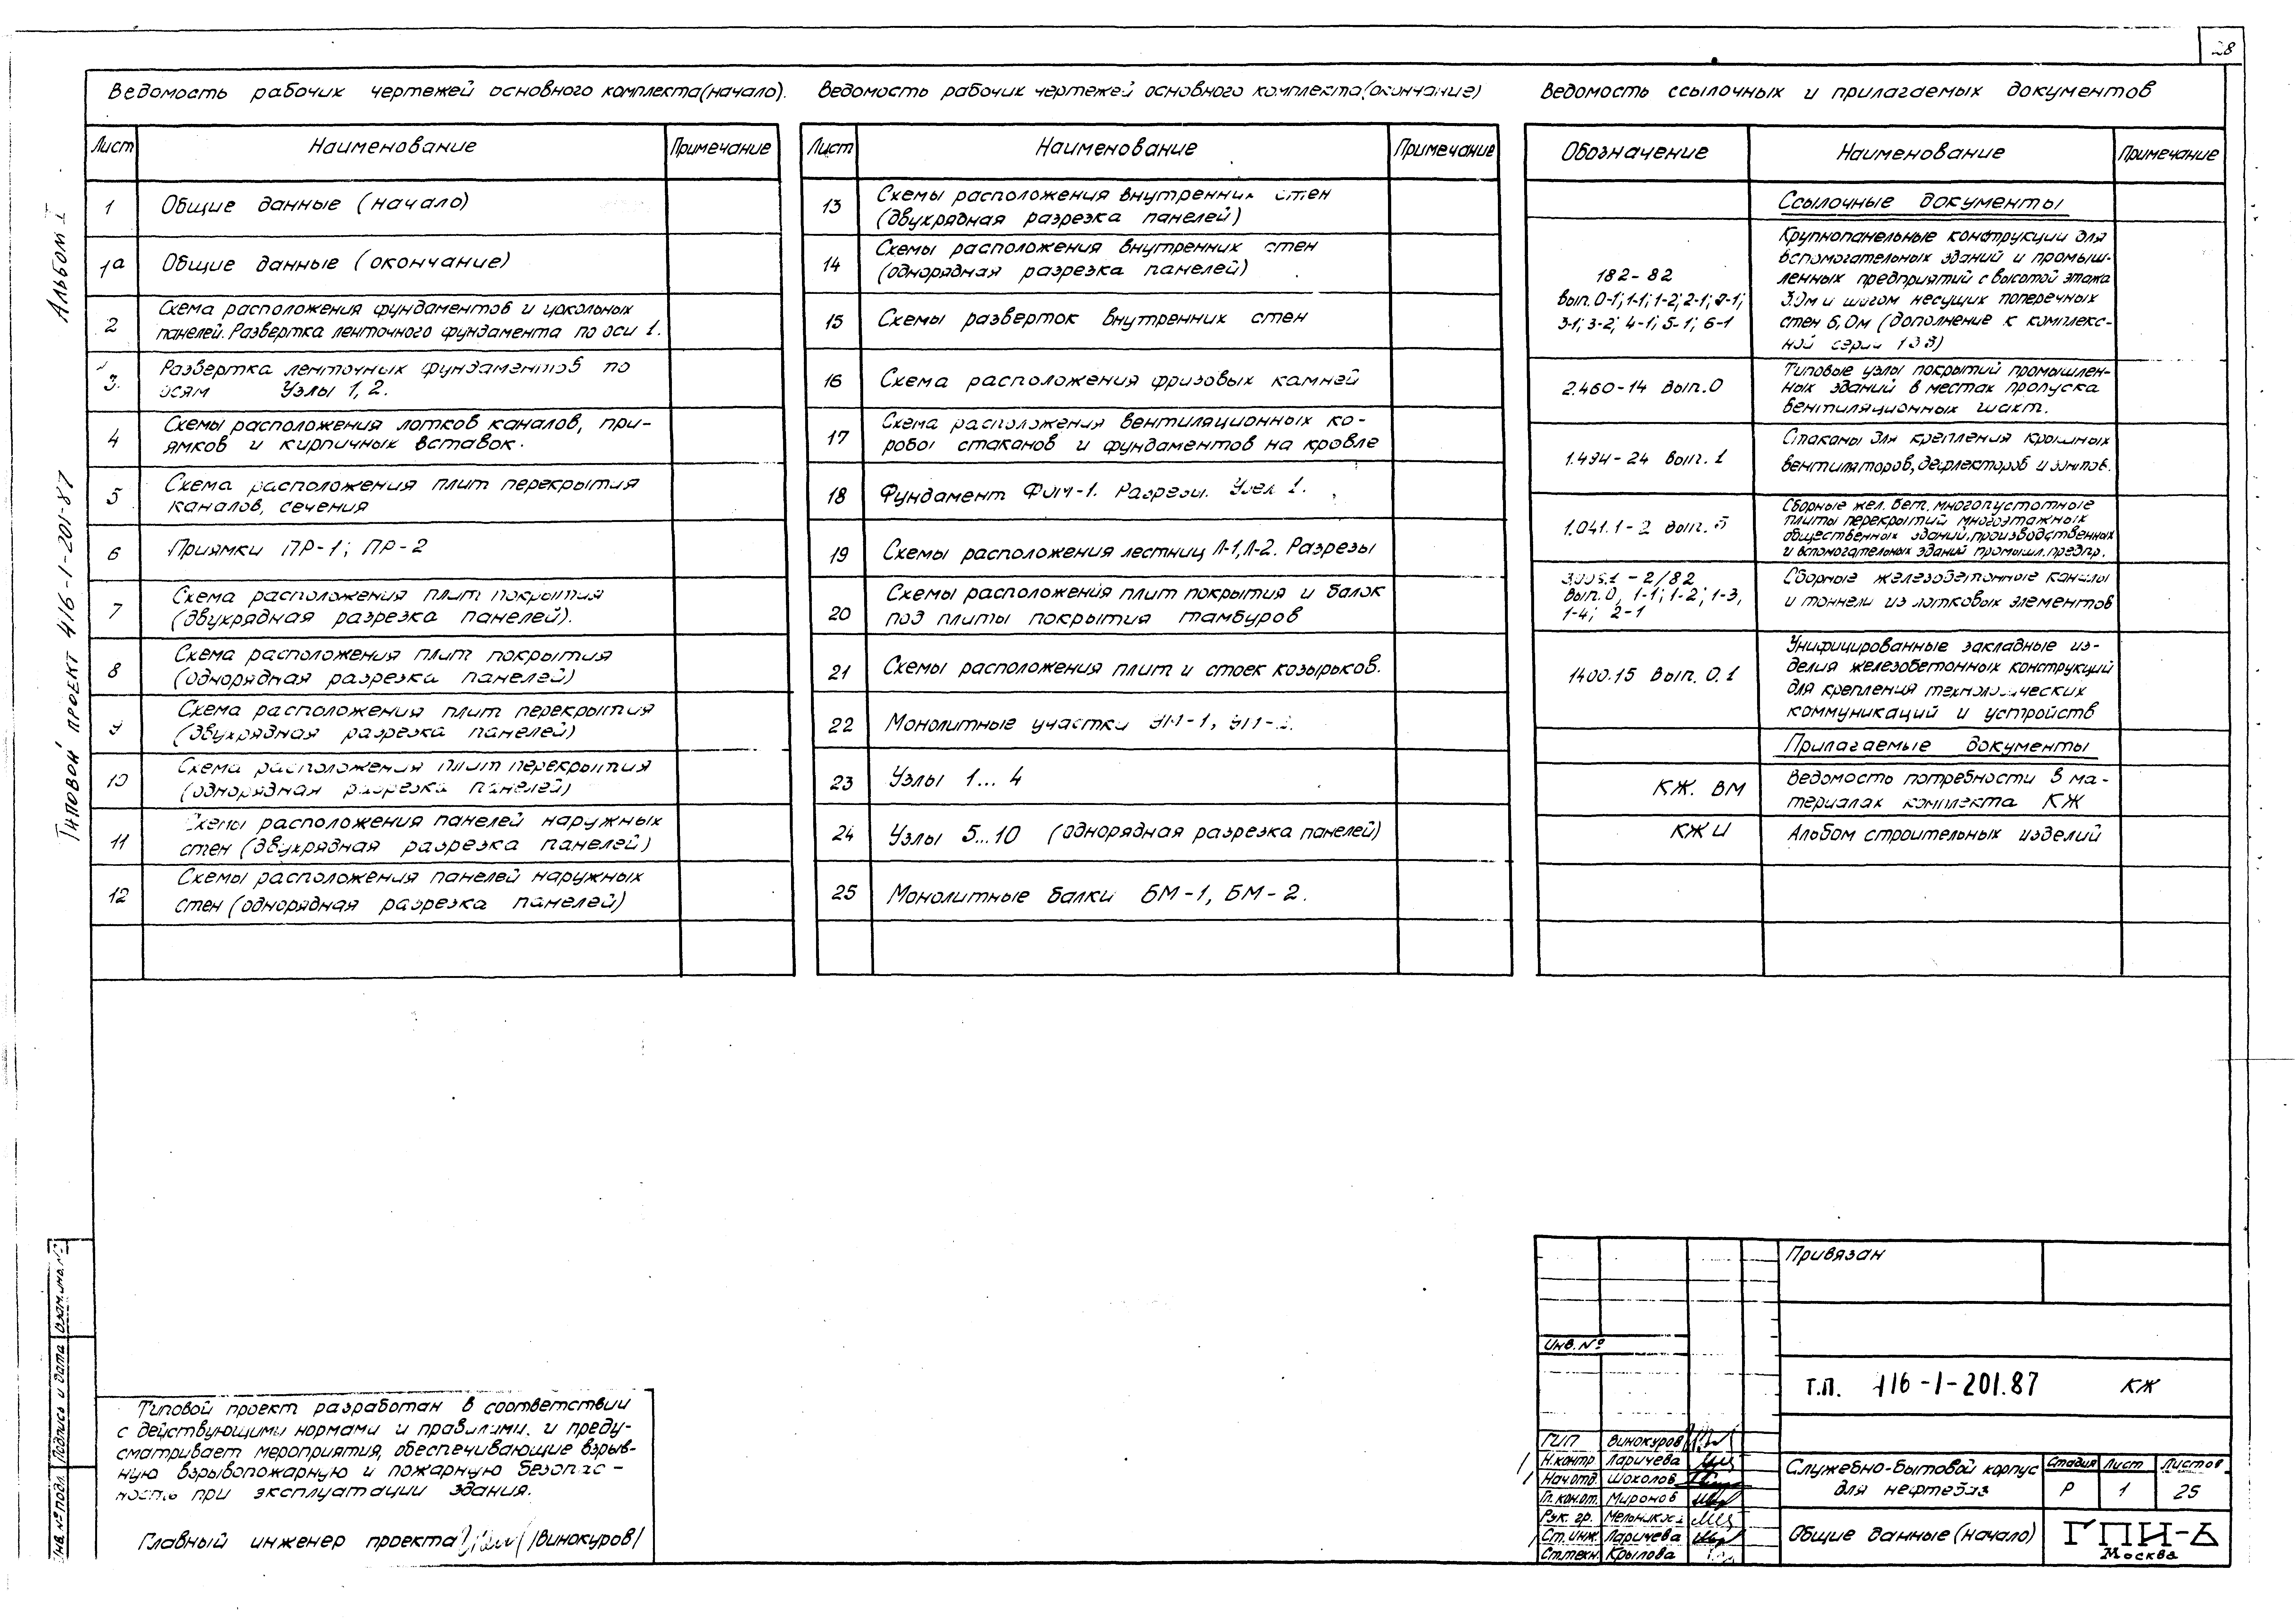 28
Альбом I
Типовой проект 416-1-201-87
Ведомость рабочих чертежей основного комплекта (начало).
Лист Наименование Примечание
1 Общие данные (начало)
1а Общие данные (окончание)
2 Схема расположения фундаментов и цокольных
панелей. Развертка ленточного фундамента по оси 1.
3 Развертка ленточных фундаментов по
осям Узлы 1, 2.
4 Схемы расположения лотков каналов, при-
ямков и кирпичных вставок.
5 Схема расположения плит перекрытия
каналов, сечения
6 Приямки ПР-1; ПР-2
7 Схема расположения плит покрытия
(двухрядная разрезка панелей).
8 Схема расположения плит покрытия
(однорядная разрезка панелей)
9 Схема расположения плит перекрытия
(двухрядная разрезка панелей)
10 Схема расположения плит перекрытия
(однорядная разрезка панелей)
11 Схемы расположения панелей наружных
стен (двухрядная разрезка панелей)
12 Схемы расположения панелей наружных
стен (однорядная разрезка панелей)
Ведомость рабочих чертежей основного комплекта (окончание)
Лист Наименование Примечание
13 Схемы расположения внутренних стен
(двухрядная разрезка панелей)
14 Схемы расположения внутренних стен
(однорядная разрезка панелей)
15 Схемы разверток внутренних стен
16 Схема расположения фризовых камней
17 Схема расположения вентиляционных ко-
робов стаканов и фундаментов на кровле
18 Фундамент Фом-1. Разрезы. Узел 1.
19 Схемы расположения лестниц Л-1, Л-2. Разрезы
20 Схемы расположения плит покрытия и балок
под плиты покрытия тамбуров
21 Схемы расположения плит и стоек козырьков.
22 Монолитные участки
23 Узлы 1...4
24 Узлы 5...10 (однорядная разрезка панелей)
25 Монолитные балки БМ-1, БМ-2.
Ведомость ссылочных и прилагаемых документов
Обозначение Наименование Примечание
Ссылочные документы
182-82
вып. 0-1; 1-1; 1-2; 2-1;
3-1; 3-2; 4-1; 5-1; 6-1
Крупнопанельные конструкции для
вспомогательных зданий и промыш-
ленных предприятий с высотой этажа
3.0м и шагом несущих поперечных
стен 6,0м (дополнение к комплекс-
ной серии
2.460-14 вып. 0
Типовые узлы покрытий промышлен-
ных зданий в местах пропуска
вентиляционных шахт.
1.494-24 вып. 1
Стаканы для крепления крышных
вентиляторов, дефлекторов и зонтов.
1.041.1-2 вып. 5
Сборные жел. бет. многопустотные
плиты перекрытий многоэтажных
общественных зданий, производственных
и вспомогательных зданий промышл. предпр.
3.006.1-2/82
вып. 0, 1-1; 1-2; 1-3,
1-4; 2-1
Сборные железобетонные каналы
и тоннели из лотковых элементов
1400.15 вып. 0.1
Унифицированные закладные из-
делия железобетонных конструкций
для крепления технологических
коммуникаций и устройств
Прилагаемые документы
КЖ. ВМ Ведомость потребности в ма-
териалах комплекта КЖ
КЖИ Альбом строительных изделий
Типовой проект разработан в соответствии
с действующими нормами и правилами и преду-
сматривает мероприятия, обеспечивающие взрыв-
ную взрывопожарную и пожарную безопас-
ность при эксплуатации здания.
Главный инженер проекта /Винокуров/
Инв. № подл. Подпись и дата Взам. инв. №
Привязан
Инв. №
Т.п. 416-1-201.87 КЖ
ГИП Винокуров
Н.контр Ларичева
Нач.отд Шохолов
Гл. кон.от. Миронов
Рук. гр.
Ст. инж. Ларичева
Ст.техн. Крылова
Служебно-бытовой корпус
для нефтебаз
Стадия Лист Листов
Р 1 25
Общие данные (начало)
ГПИ-6
Москва